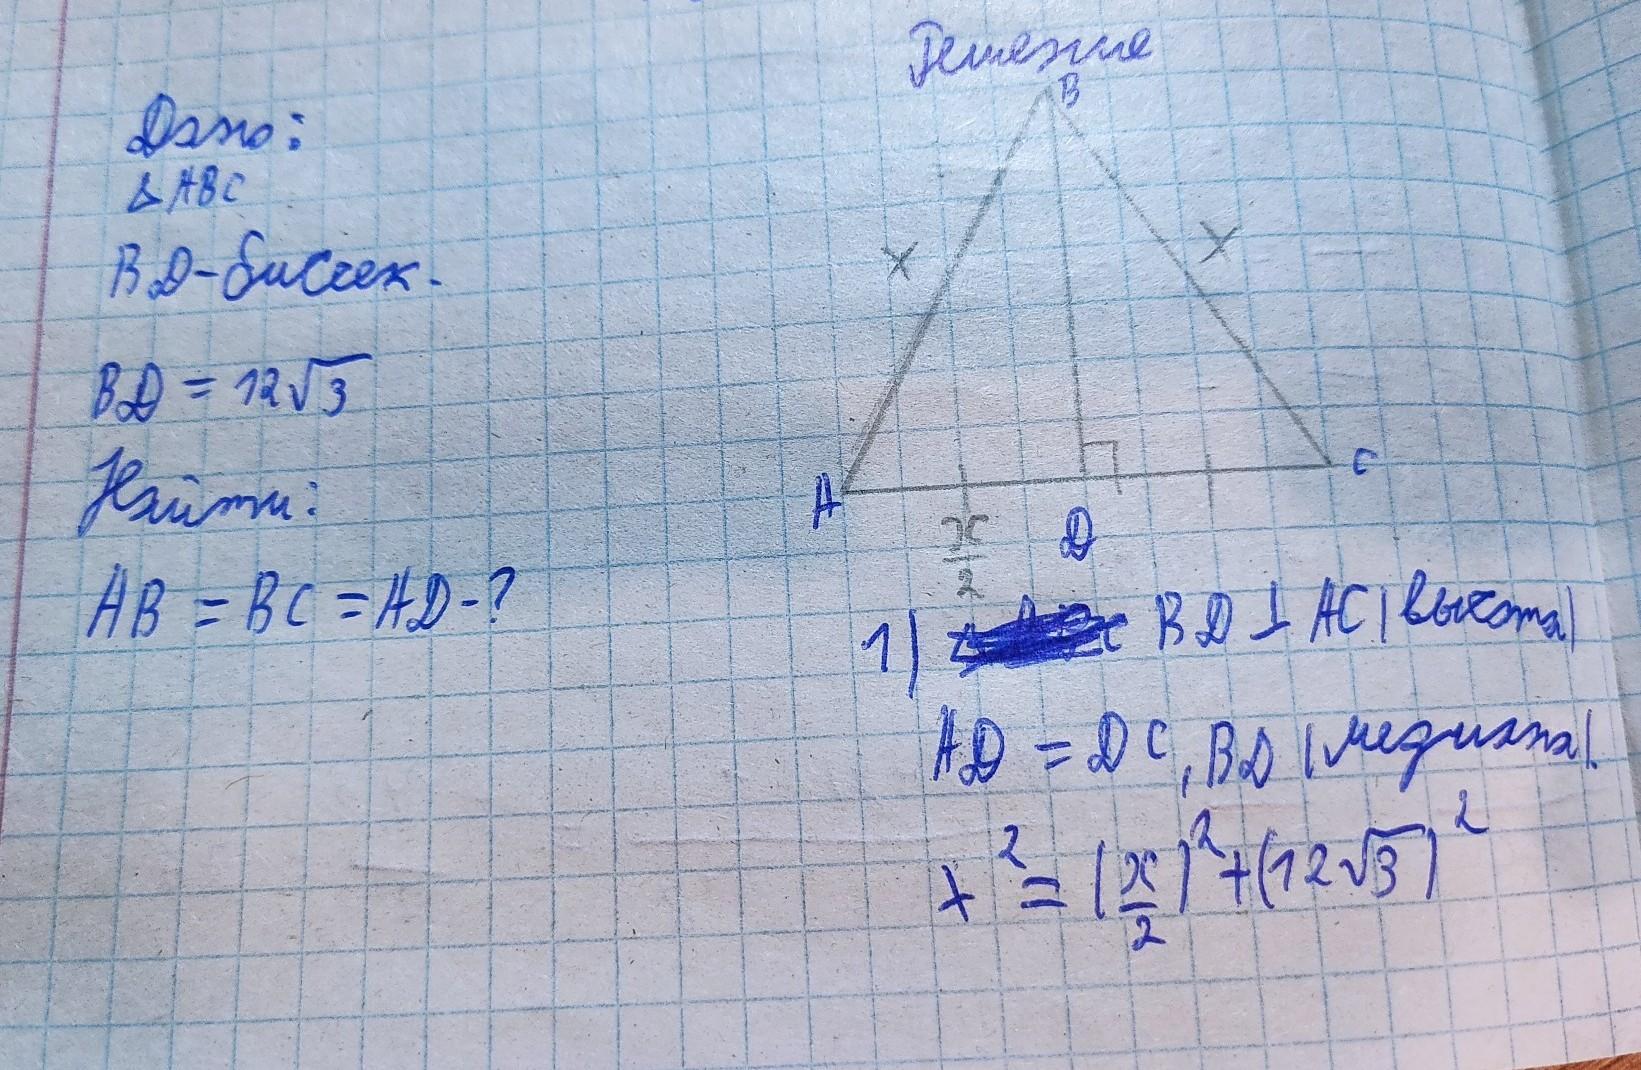 Решение
Дано:
△ABC
BD-биссек.
BD = 12√3
Найти:
AB = BC = AD-?
B
x
x
A
C
D
x/2
1) BD ⊥ AC (высота)
AD = DC, BD (медиана).
x² = (x/2)² + (12√3)²